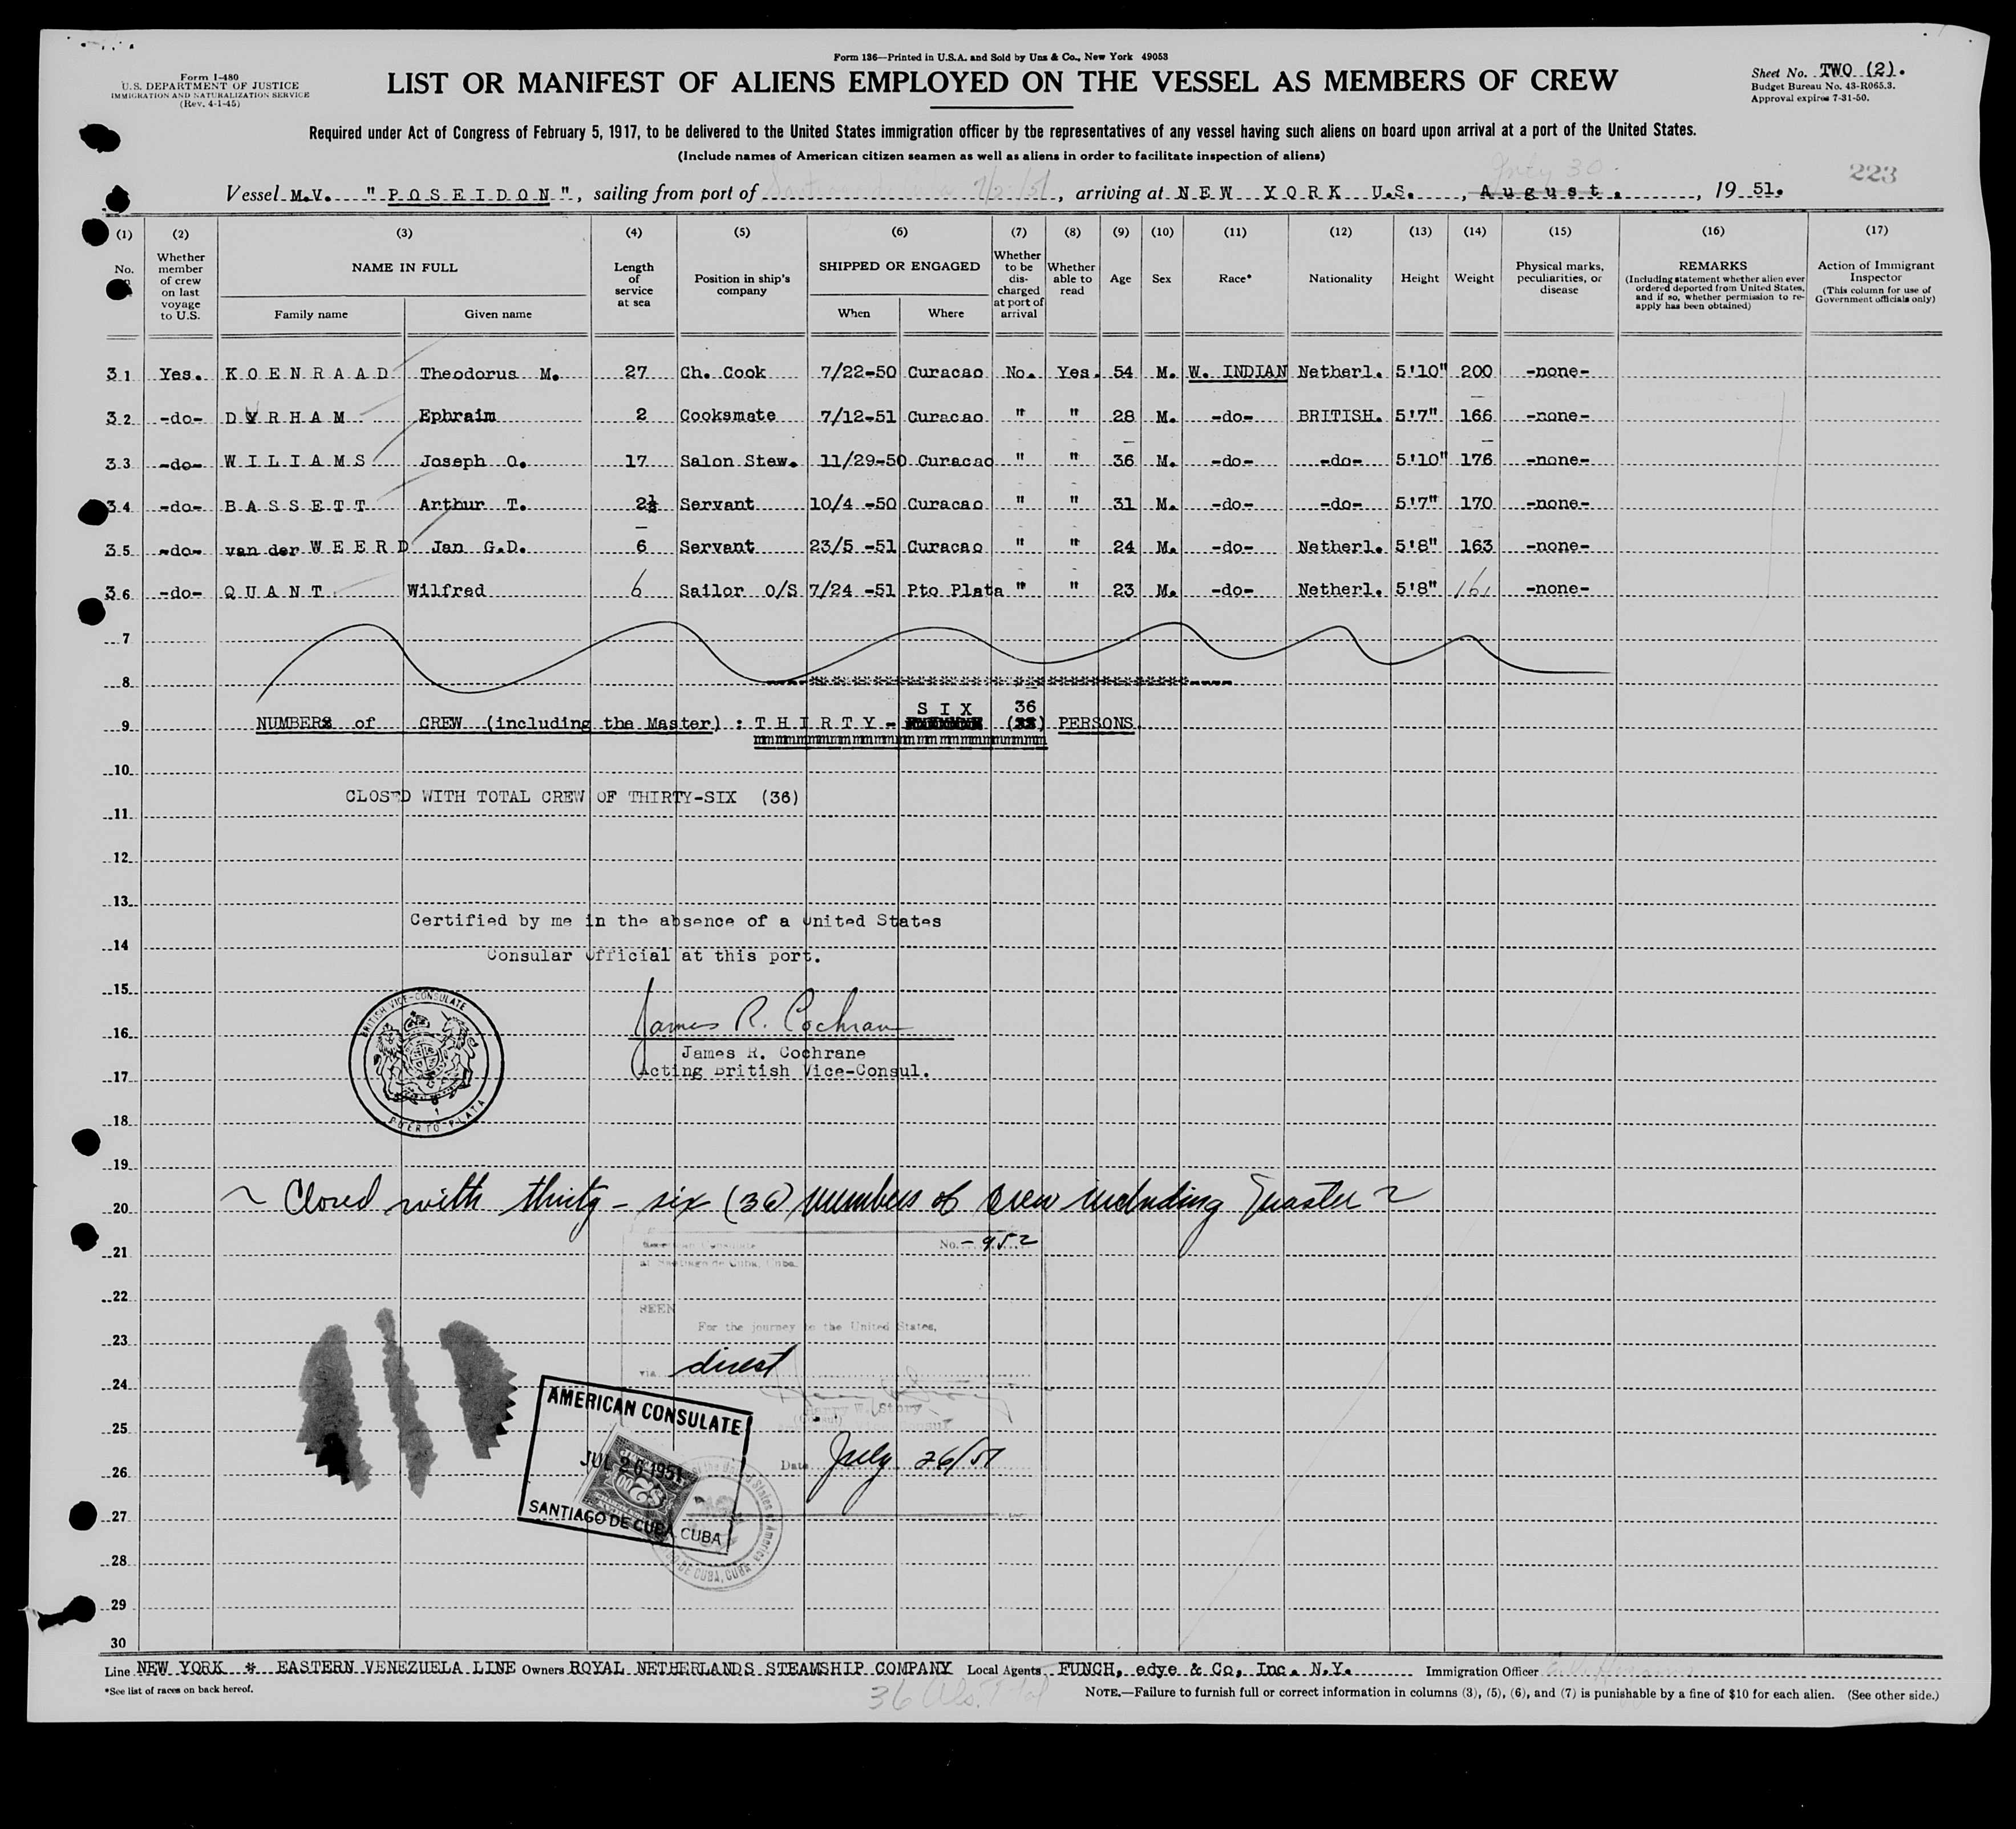 Form 136—Printed in U.S.A. and Sold by Unz & Co., New York 49053
Form I-480
U.S. DEPARTMENT OF JUSTICE
IMMIGRATION AND NATURALIZATION SERVICE
(Rev. 4-1-45)
LIST OR MANIFEST OF ALIENS EMPLOYED ON THE VESSEL AS MEMBERS OF CREW
Sheet No. TWO (2).
Budget Bureau No. 43-R065.3.
Approval expires 7-31-50.
Required under Act of Congress of February 5, 1917, to be delivered to the United States immigration officer by the representatives of any vessel having such aliens on board upon arrival at a port of the United States.
(Include names of American citizen seamen as well as aliens in order to facilitate inspection of aliens)
July 30
223
Vessel M.V. "POSEIDON", sailing from port of Santiago de Cuba, arriving at NEW YORK U.S., August., 19 51.
(1) (2) (3) (4) (5) (6) (7) (8) (9) (10) (11) (12) (13) (14) (15) (16) (17)
No.
Whether member of crew on last voyage to U.S.
NAME IN FULL
Family name
Given name
Length of service at sea
Position in ship's company
SHIPPED OR ENGAGED
When
Where
Whether to be discharged at port of arrival
Whether able to read
Age
Sex
Race*
Nationality
Height
Weight
Physical marks, peculiarities, or disease
REMARKS
(Including statement whether alien ever ordered deported from United States, and if so, whether permission to reapply has been obtained)
Action of Immigrant Inspector
(This column for use of Government officials only)
31 Yes. KOENRAAD Theodorus M. 27 Ch. Cook 7/22-50 Curacao No. Yes. 54 M. W. INDIAN Netherl. 5'10" 200 -none-
32 -do- DYRHAM Ephraim 2 Cooksmate 7/12-51 Curacao " " 28 M. -do- BRITISH. 5'7" 166 -none-
33 -do- WILIAMS Joseph O. 17 Salon Stew. 11/29-50 Curacao " " 36 M. -do- -do- 5'10" 176 -none-
34 -do- BASSETT Arthur T. 2½ Servant 10/4 -50 Curacao " " 31 M. -do- -do- 5'7" 170 -none-
35 -do- van der WEERD Jan G.D. 6 Servant 23/5 -51 Curacao " " 24 M. -do- Netherl. 5'8" 163 -none-
36 -do- QUANT Wilfred 6 Sailor O/S 7/24 -51 Pto Plata " " 23 M. -do- Netherl. 5'8" 161 -none-
7
8
SIX 36
9 NUMBERS of CREW (including the Master) : THIRTY- PERSONS
10
CLOSED WITH TOTAL CREW OF THIRTY-SIX (36)
11
12
13
Certified by me in the absence of a United States
14
Consular Official at this port.
15
BRITISH VICE-CONSULATE
PUERTO PLATA
16
James R. Cochrane
James R. Cochrane
17
Acting British Vice-Consul.
18
19
20 Closed with thirty-six (36) members of crew including master
21
American Consulate No. 952
at Santiago de Cuba, Cuba.
22
SEEN
For the journey to the United States,
23
via direct
24
AMERICAN CONSULATE
Harry W. Story
25
JUL 26 1951
Date July 26/51
26
SANTIAGO DE CUBA, CUBA
27
28
29
30
Line NEW YORK * EASTERN VENEZUELA LINE Owners ROYAL NETHERLANDS STEAMSHIP COMPANY Local Agents FUNCH, edye & Co, Inc. N.Y. Immigration Officer
*See list of races on back hereof.
36 Als. Total
NOTE.—Failure to furnish full or correct information in columns (3), (5), (6), and (7) is punishable by a fine of $10 for each alien. (See other side.)